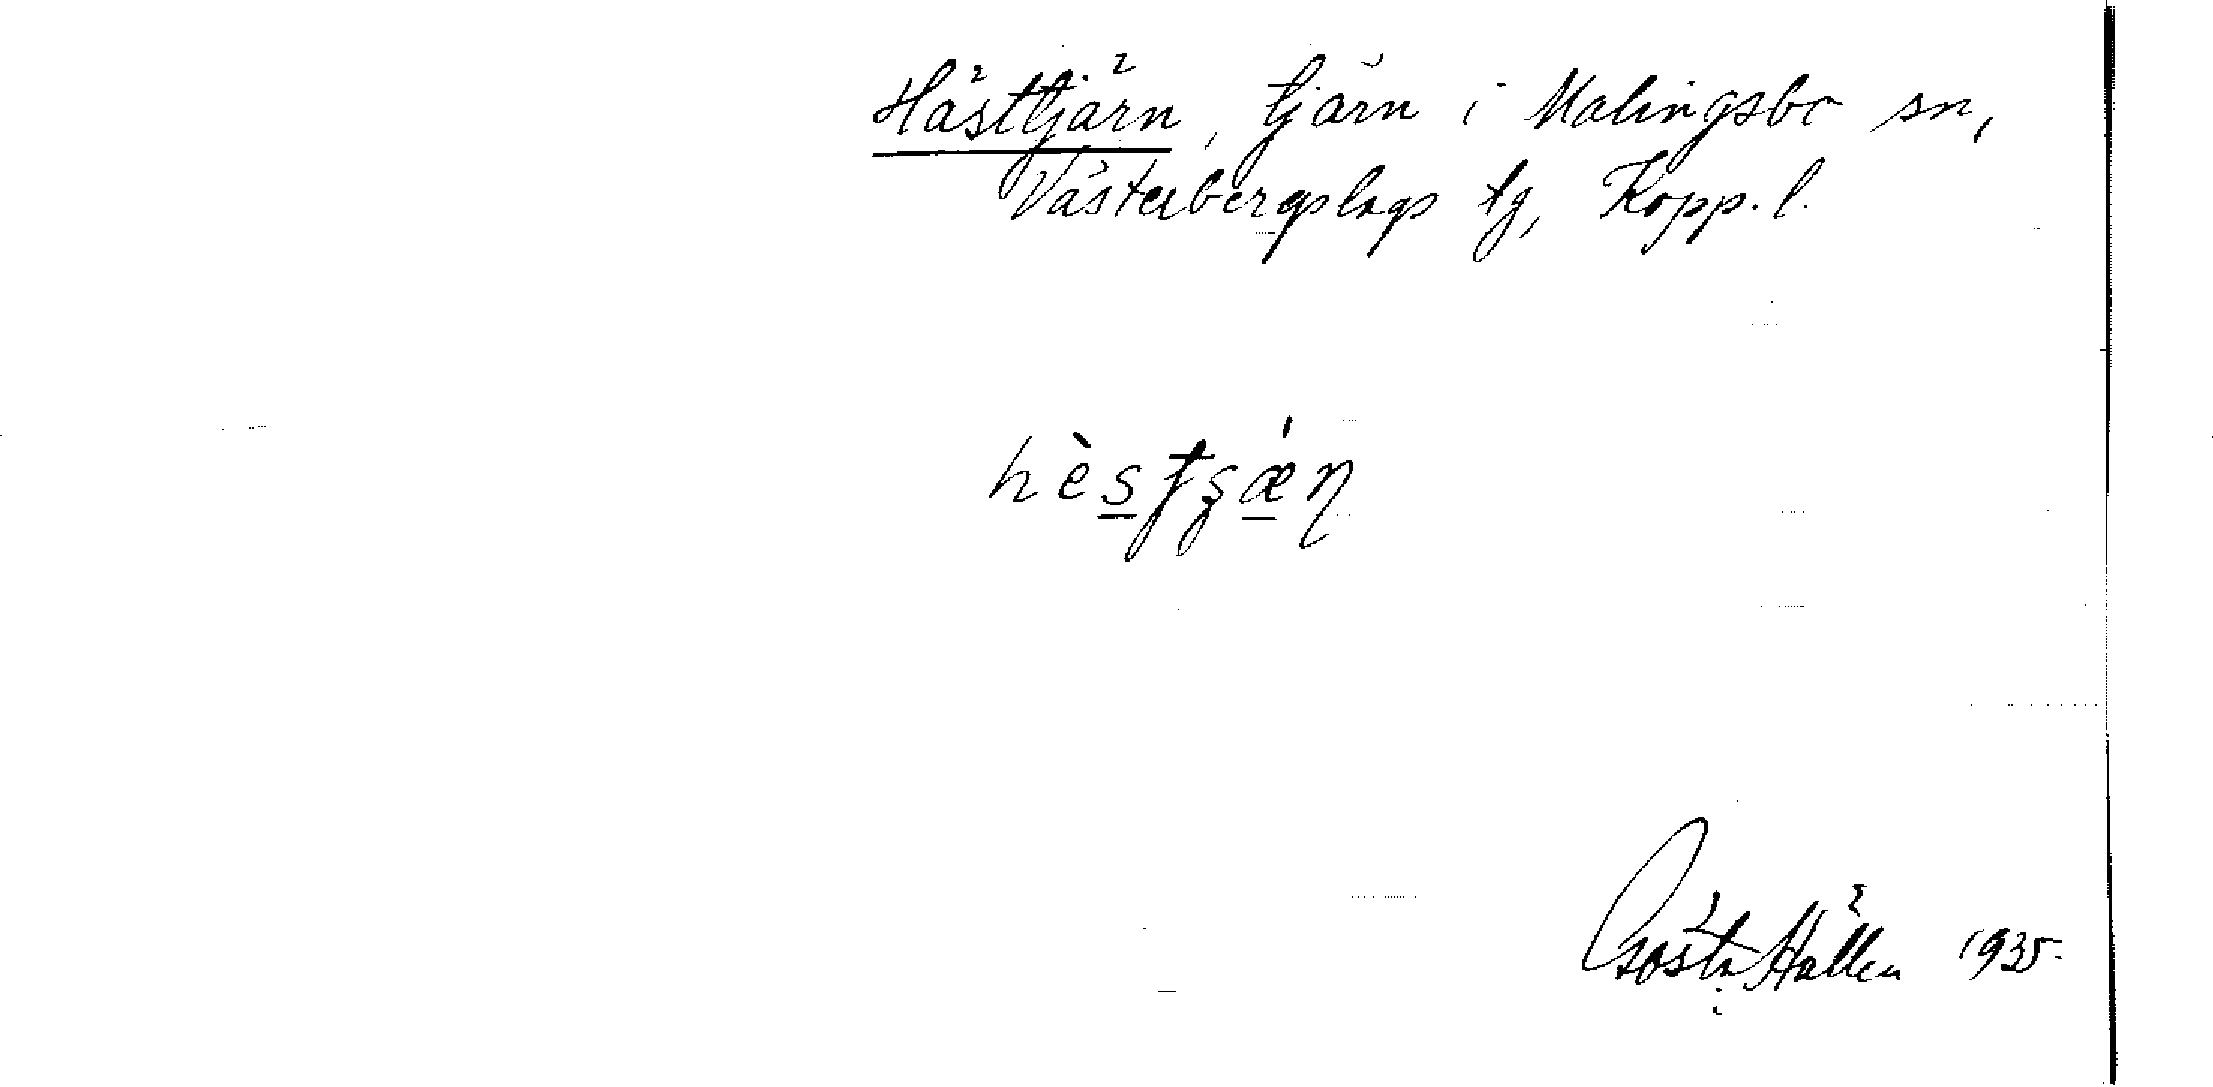 Hästtjärn, tjärn i Malingsbo sn,
Västerbergslags tg, Kopp. l.
Gösta Hallén 1935.